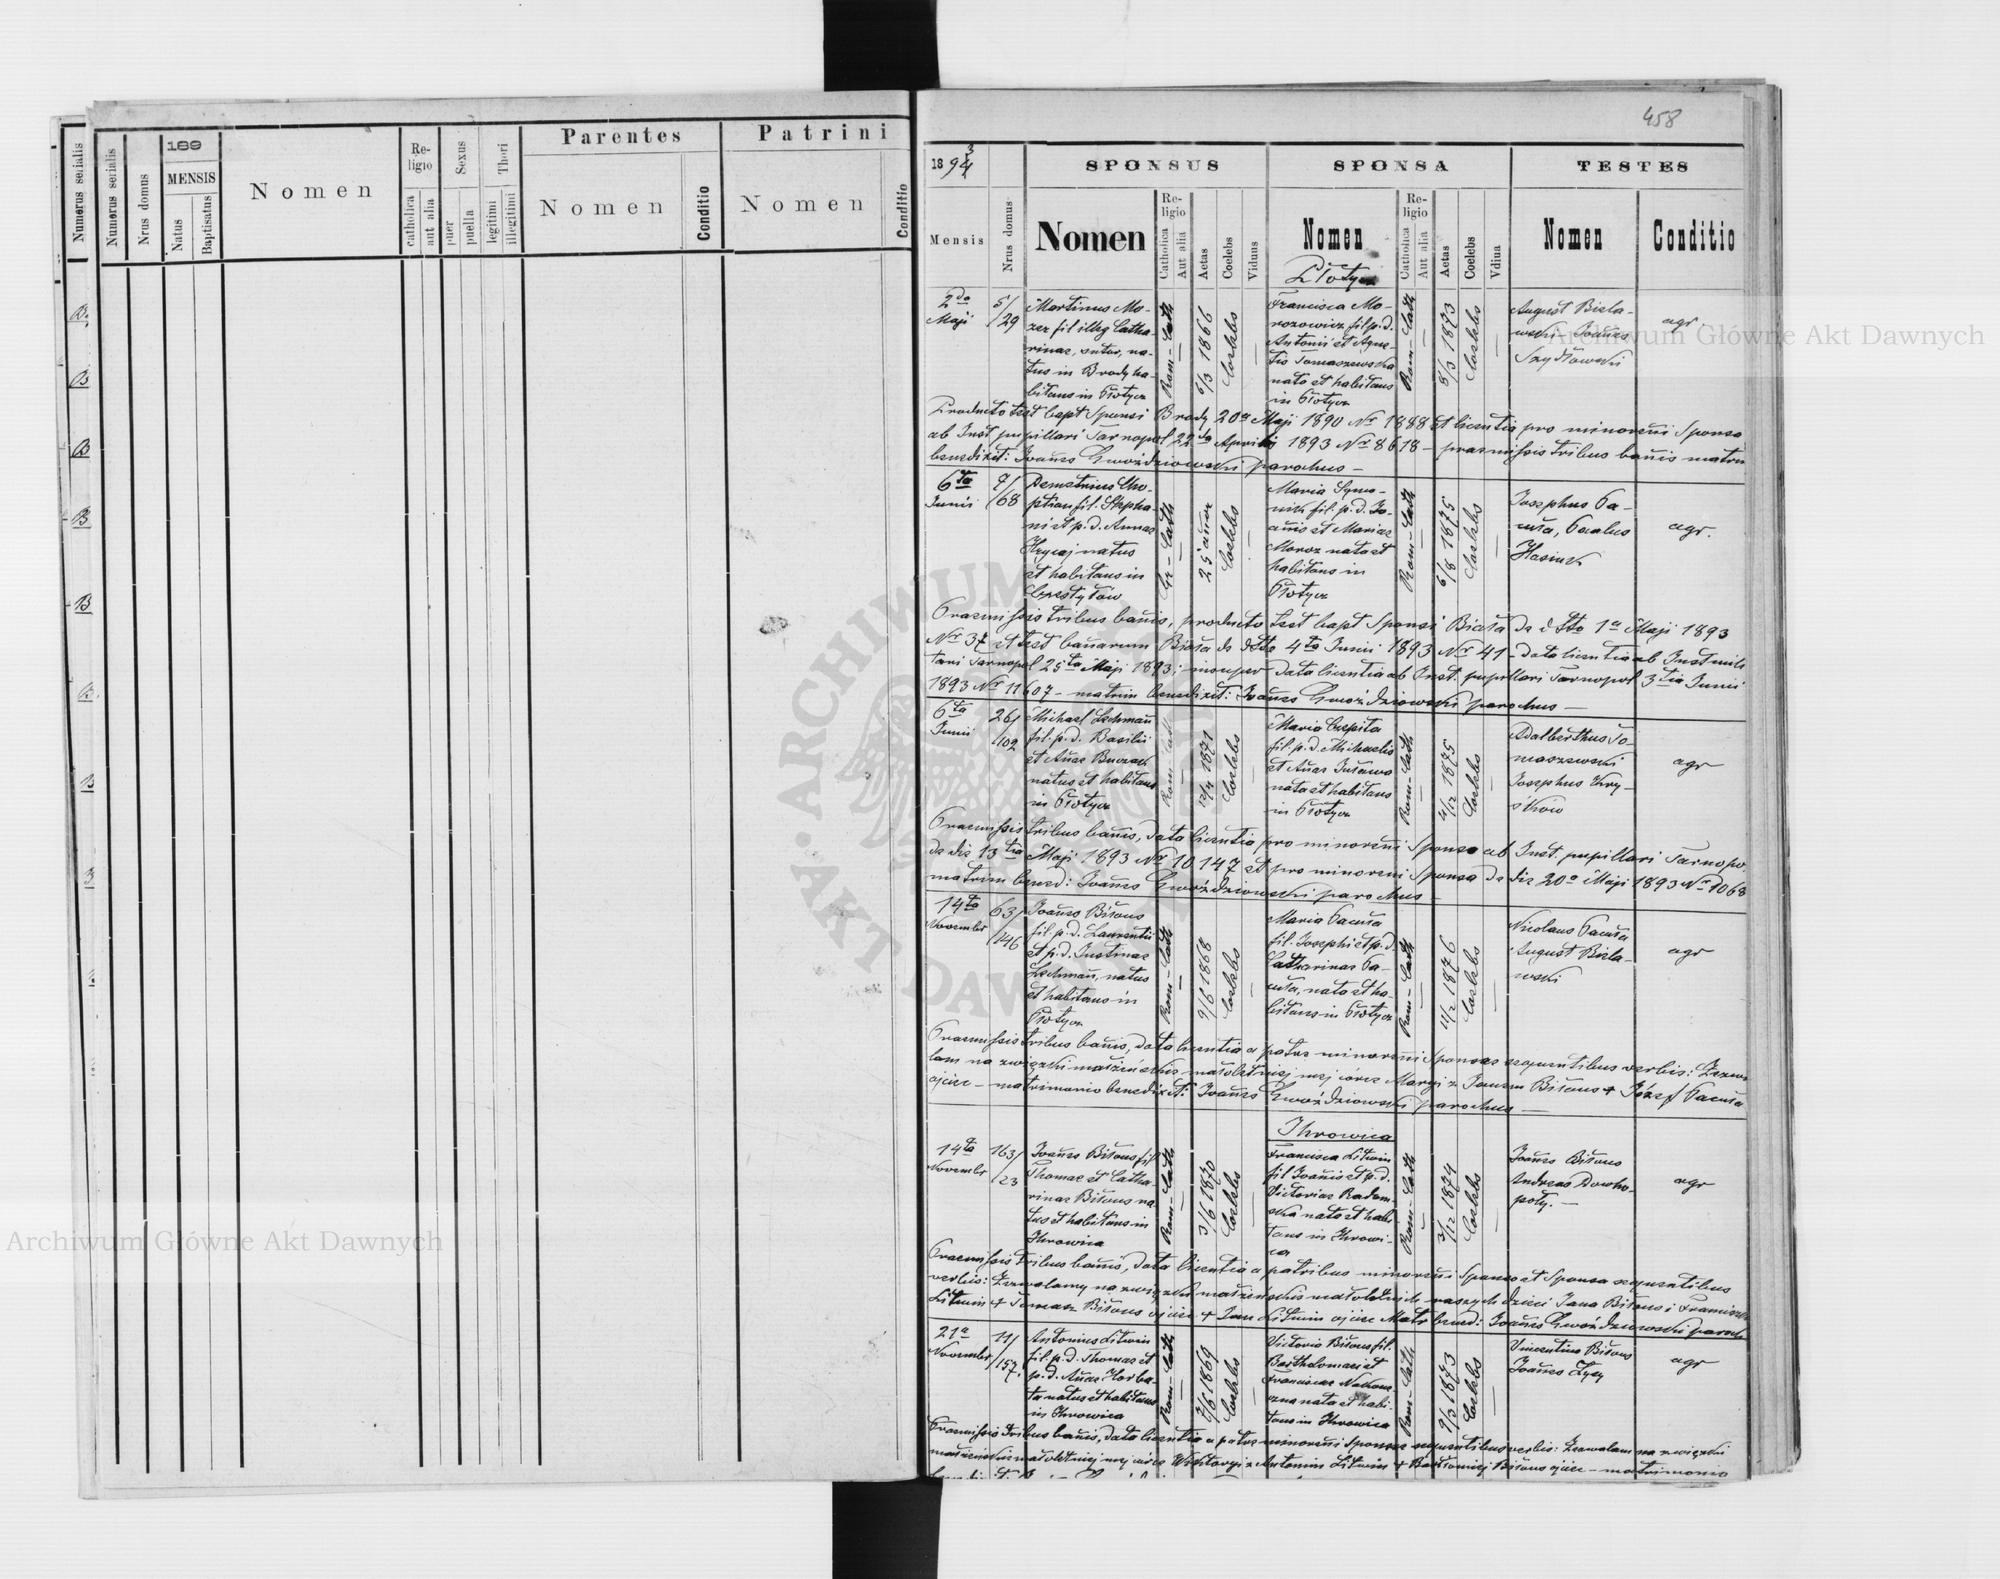 458
Numerus serialis
Numerus serialis
Nrus domus
189
MENSIS
Natus
Baptisatus
Nomen
Religio
catholica
aut alia
Sexus
puer
puella
Thori
legitimi
illegitimi
Parentes
Nomen
Conditio
Patrini
Nomen
Conditio
1893/4
Mensis
Nrus domus
SPONSUS
Nomen
Religio
Catholica
Aut alia
Aetas
Coelebs
Viduus
SPONSA
Nomen
Religio
Catholica
Aut alia
Aetas
Coelebs
Vdiua
TESTES
Nomen
Conditio
Płotycz
2do
Maji
5/29
Martinus Mo-
zer fil illeg Catha-
rinae, sutor, na-
tus in Brody ha-
bitans in Płotycz
Rom-Cath
6/3 1866
Coelebs
Francisca Mo-
rozowicz fil p.d.
Antonii et Agne-
tis Tomaszewska
nata et habitans
in Płotycz
Rom-Cath
8/3 1873
Coelebs
August Biela-
wski Joañes
Szydłowski
agr.
Producto test bapt Sponsi Brody 20a Maji 1890 Nr 1888 et licentia pro minoreñi Sponsa
ab Inst pupillari Tarnopol 22da Aprilis 1893 Nr 8618 - praemissis tribus bañis matrim
benedixit: Joañes Gwoździowski parochus -
6ta
Junii
7/68
Demetrius
fil. Stepha-
ni et p.d. Annae
Hrycaj natus
et habitans in
Czestyłów
Gr-Cath
25 añor
Coelebs
Maria Symo-
nich fil. p.d. Jo-
añis et Mariae
Moroz nata et
habitans in
Płotycz
Rom-Cath
6/8 1875
Coelebs
Josephus Pa-
cuła, Paulus
Hasiuk
agr.
Praemissis tribus bañis, producto test bapt Sponsi Biała de dtto 1a Maji 1893
Nr 37 et test bañorum Biała de dtto 4ta Junii 1893 Nr 41 - data licentia ab Inst mili
tari Tarnopol 25ta Maji 1893; insuper data licentia ab Inst. pupillari Tarnopol 3tia Junii
1893 Nr 11607 - matrim benedixit: Joañes Gwoździowski parochus -
6ta
Junii
26/102
Michael Lechmañ
fil. p.d. Basilii
et Añae Buczak
natus et habitans
in Płotycz
Rom-Cath
12/4 1871
Coelebs
Maria Czepita
fil. p.d. Michaelis
et Añae
nata et habitans
in Płotycz
Rom-Cath
4/12 1875
Coelebs
Adalberthus To-
maszewski
Josephus Kry-
śków
agr
Praemissis tribus bañis, data licentia pro minoreñi Sponso ab Inst. pupillari Tarnopo-
de die 13tia Maji 1893 Nr 10147 et pro minoreni Sponsa de die 20a Maji 1893 Nr 1068
matrim bened: Joañes Gwoździowski parochus -
14ta
Novembr
63/146
Joañes Biłous
fil. p.d. Laurentii
et p.d. Justinae
Lechmañ, natus
et habitans in
Płotycz
Rom-Cath
9/6 1868
Coelebs
Maria Pacuła
fil. Josephi et p.d.
Catharinae Pa-
cuła, nata et ha-
bitans in Płotycz
Rom-Cath
11/2 1876
Coelebs
Nicolaus Pacuła
August Biela-
wski
agr
Praemissis tribus bañis, data licentia a patre minoreñi Sponsae sequentibus verbis: Zezwa
lam na związki małżeńskie małoletniej mej córce Maryi z Janem Biłous + Józef Pacuła
ojciec - matrimonio benedixit: Joañes Gwoździowski parochus -
Ihrowica
14ta
Novembr
163/23
Joañes Biłous fil
Thomae et Catha-
rinae Biłous na-
tus et habitans in
Ihrowica
Rom-Cath
3/6 1870
Coelebs
Francisca Litwin
fil Joañis et p.d.
Victoriae Radom-
ska nata et habi-
tans in Ihrowi-
ca
Rom-Cath
3/12 1874
Coelebs
Joañes Biłous
Andreas Dowho-
poły. -
agr
Praemissis tribus bañis, data licentia a patribus minoreñi Sponso et Sponsa sequentibus
verbis: Zezwalamy na związki małżeńskie małoletnich naszych dzieci Jana Biłous i Franciszki
Litwin + Tomasz Biłous ojciec + Jan Litwin ojciec Matr bened: Joañes Gwoździowski paroch
21a
Novembr
11/157.
Antonius Litwin
fil. p.d. Thomae et
p.d. Añae Harba-
ta natus et habitans
in Ihrowica
Rom-Cath
7/6 1869
Coelebs
Victoria Biłous fil.
Bartholomaei et
Franciscae Nakone-
czna nata et habi-
tans in Ihrowica
Rom-Cath
9/3 1873
Coelebs
Vincentius Biłous
Joañes Łyzy
agr
Praemissis tribus bañis, data licentia a patre minoreñi Sponsae sequentibus verbis: Zezwalam na związki
małżeńskie małoletniej mej córce Wiktoryi z Antonim Litwin + Bartłomiej Biłous ojciec - matrimonio
B.
B
B
B
B
B
B
B
Archiwum Główne Akt Dawnych
Archiwum Główne Akt Dawnych
ARCHIWUM
AKT DAWNYCH